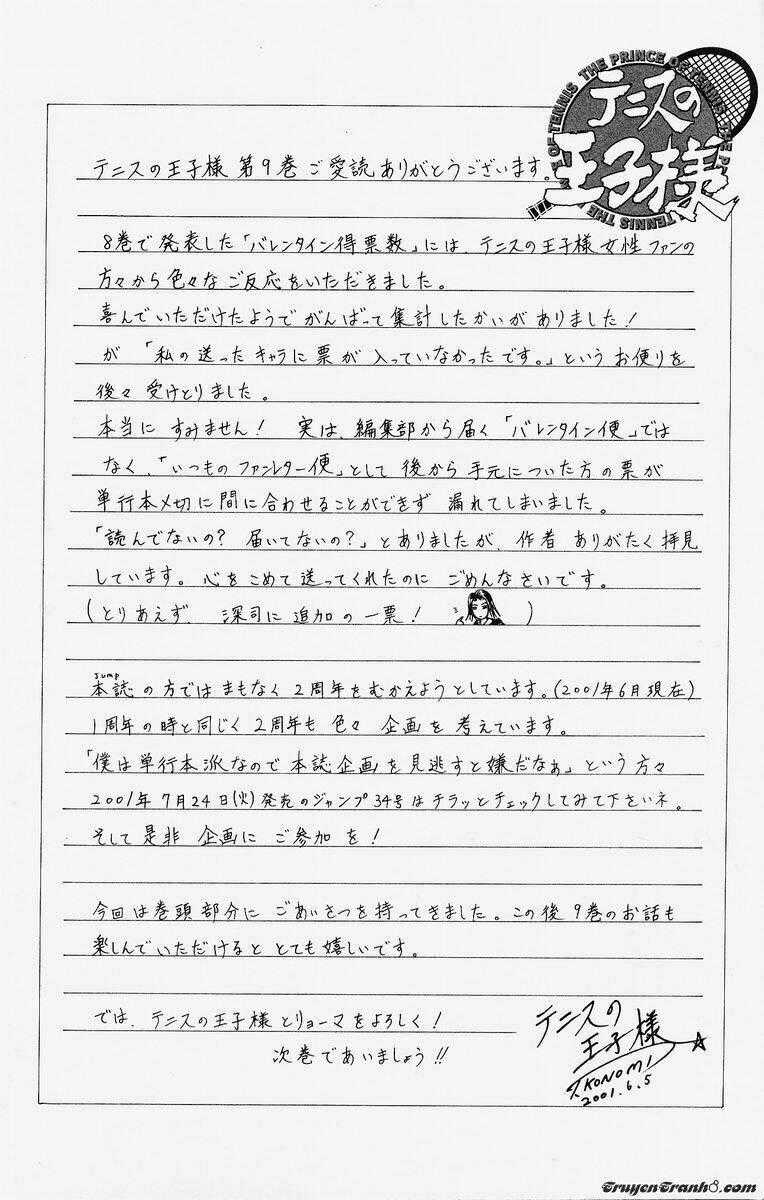 THE PRINCE OF TENNIS
テニスの
王子様
テニスの王子様 第9巻 ご愛読ありがとうございます。
8巻で発表した「バレンタイン得票数」には、テニスの王子様女性ファンの
方々から色々なご反応をいただきました。
喜んでいただけたようでがんばって集計したかいがありました!
が「私の送ったキャラに票が入っていなかったです。」というお便りを
後々受けとりました。
本当にすみません! 実は、編集部から届く「バレンタイン便」では
なく、「いつものファンレター便」として後から手元についた方の票が
単行本〆切に間に合わせることができず 漏れてしまいました。
「読んでないの? 届いてないの?」とありましたが、作者 ありがたく拝見
しています。心をこめて送ってくれたのに ごめんなさいです。
(とりあえず、深司に追加の一票! )
jump
本誌の方ではまもなく2周年をむかえようとしています。(2001年6月現在)
1周年の時と同じく2周年も色々 企画を考えています。
「僕は単行本派なので本誌企画を見逃すと嫌だなぁ」という方々
2001年7月24日(火)発売のジャンプ34号はチラッとチェックしてみて下さいネ。
そして是非 企画に ご参加を!
今回は巻頭部分に ごあいさつを持ってきました。この後9巻のお話も
楽しんでいただけると とても嬉しいです。
では、テニスの王子様とリョーマをよろしく!
次巻であいましょう!!
テニスの
王子様
T.KONOMI
2001.6.5
TruyenTranh8.com